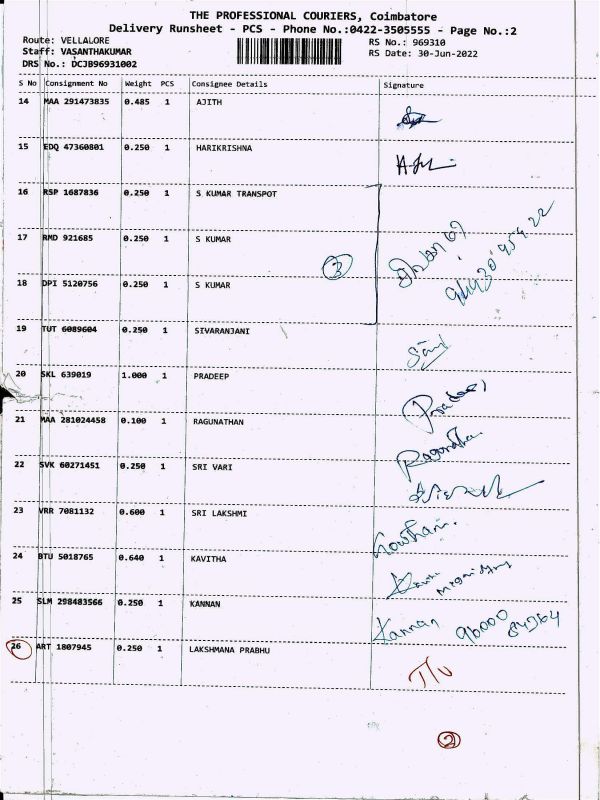 THE PROFESSIONAL COURIERS, Coimbatore
Delivery Runsheet - PCS - Phone No.:0422-3505555 - Page No.:2
Route: VELLALORE
RS No.: 969310
Staff: VASANTHAKUMAR
RS Date: 30-Jun-2022
DRS No.: DCJB96931002
S No Consignment No Weight PCS Consignee Details Signature
14 MAA 291473835 0.485 1 AJITH
15 EDQ 47360801 0.250 1 HARIKRISHNA
16 RSP 1687836 0.250 1 S KUMAR TRANSPOT
17 RMD 921685 0.250 1 S KUMAR
3
18 DPI 5120756 0.250 1 S KUMAR
19 TUT 6089604 0.250 1 SIVARANJANI
20 SKL 639019 1.000 1 PRADEEP Pradeep
21 MAA 281024458 0.100 1 RAGUNATHAN
22 SVK 60271451 0.250 1 SRI VARI
23 VRR 7081132 0.600 1 SRI LAKSHMI
24 BTU 5018765 0.640 1 KAVITHA
25 SLM 298483566 0.250 1 KANNAN Kannan
26 ART 1807945 0.250 1 LAKSHMANA PRABHU
2